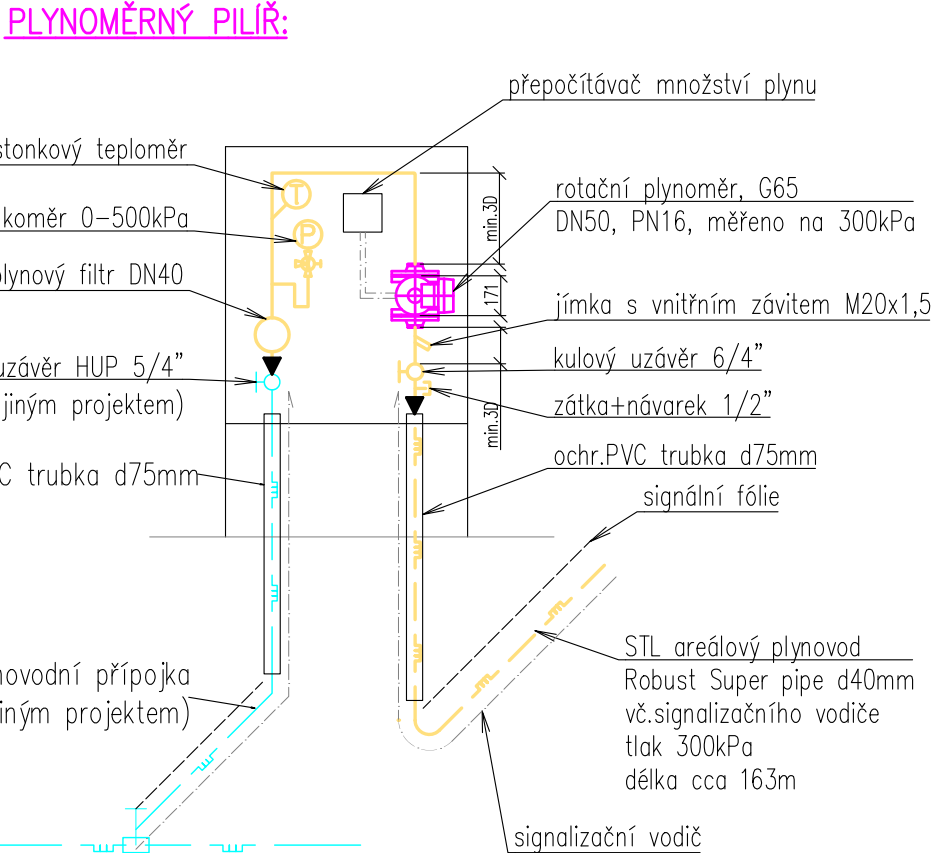 PLYNOMĚRNÝ PILÍŘ:
přepočítávač množství plynu
teploměr
0-500kPa
filtr DN40
HUP 5/4"
jiným projektem)
trubka d75mm
přípojka
projektem)
min.3D
171
min.3D
T
P
rotační plynoměr, G65
DN50, PN16, měřeno na 300kPa
jímka s vnitřním závitem M20x1,5
kulový uzávěr 6/4"
zátka+návarek 1/2"
ochr.PVC trubka d75mm
signální fólie
STL areálový plynovod
Robust Super pipe d40mm
vč.signalizačního vodiče
tlak 300kPa
délka cca 163m
signalizační vodič